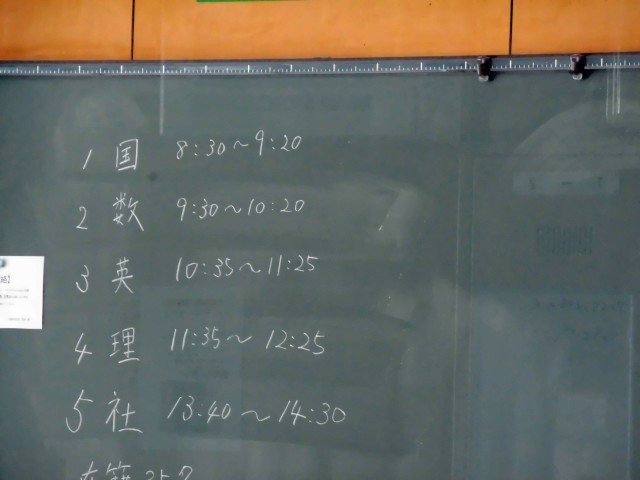 1 国 8:30～9:20
2 数 9:30～10:20
3 英 10:35～11:25
4 理 11:35～12:25
5 社 13.40～14:30
在籍 357